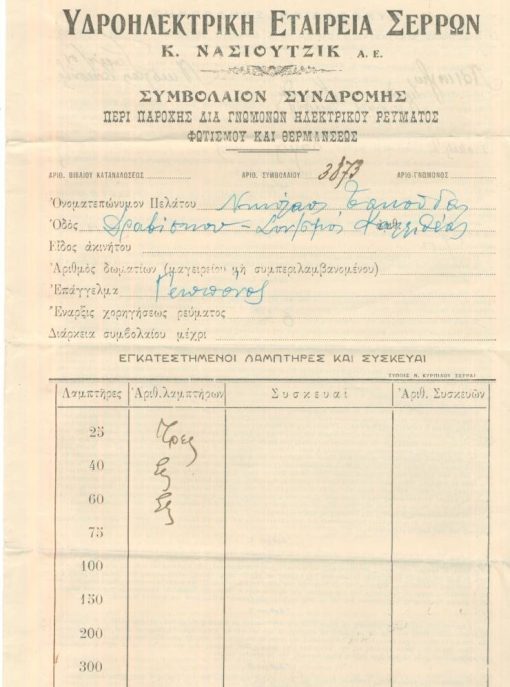 ΥΔΡΟΗΛΕΚΤΡΙΚΗ ΕΤΑΙΡΕΙΑ ΣΕΡΡΩΝ
Κ. ΝΑΣΙΟΥΤΖΙΚ Α. Ε.
ΣΥΜΒΟΛΑΙΟΝ ΣΥΝΔΡΟΜΗΣ
ΠΕΡΙ ΠΑΡΟΧΗΣ ΔΙΑ ΓΝΩΜΟΝΩΝ ΗΛΕΚΤΡΙΚΟΥ ΡΕΥΜΑΤΟΣ
ΦΩΤΙΣΜΟΥ ΚΑΙ ΘΕΡΜΑΝΣΕΩΣ
ΑΡΙΘ. ΒΙΒΛΙΟΥ ΚΑΤΑΝΑΛΩΣΕΩΣ ΑΡΙΘ. ΣΥΜΒΟΛΑΙΟΥ 3873 ΑΡΙΘ·ΓΝΩΜΟΝΟΣ
Ὀνοματεπώνυμον Πελάτου Νικόλαος
Ὁδὸς Δραβίσκου – Συν/σμός Καλλιθέας
Εἶδος ἀκινήτου
Ἀριθμὸς δωματίων (μαγειρείου μὴ συμπεριλαμβανομένου)
Ἐπάγγελμα Γεωπόνος
Ἔναρξις χορηγήσεως ρεύματος
Διάρκεια συμβολαίου μέχρι
ΕΓΚΑΤΕΣΤΗΜΕΝΟΙ ΛΑΜΠΤΗΡΕΣ ΚΑΙ ΣΥΣΚΕΥΑΙ
ΤΥΠΟΙΣ Ν. ΚΥΡΠΙΛΟΥ ΣΕΡΡΑΙ
Λαμπτῆρες Ἀριθ.λαμπτήρων Συσκευαί Ἀριθ. Συσκευῶν
25 Τρεῖς
40
60
75
100
150
200
300